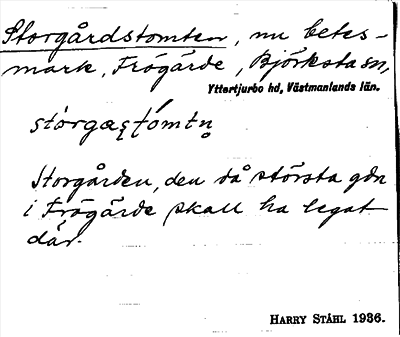 Storgårdstomten, nu betes-
mark, Frögärde, Björksta sn,
Yttertjurbo hd, Västmanlands län.
stórgæʂtómtn̥
Storgården, den då största gdn
i Frögärde skall ha legat
där.
HARRY STÅHL 1936.